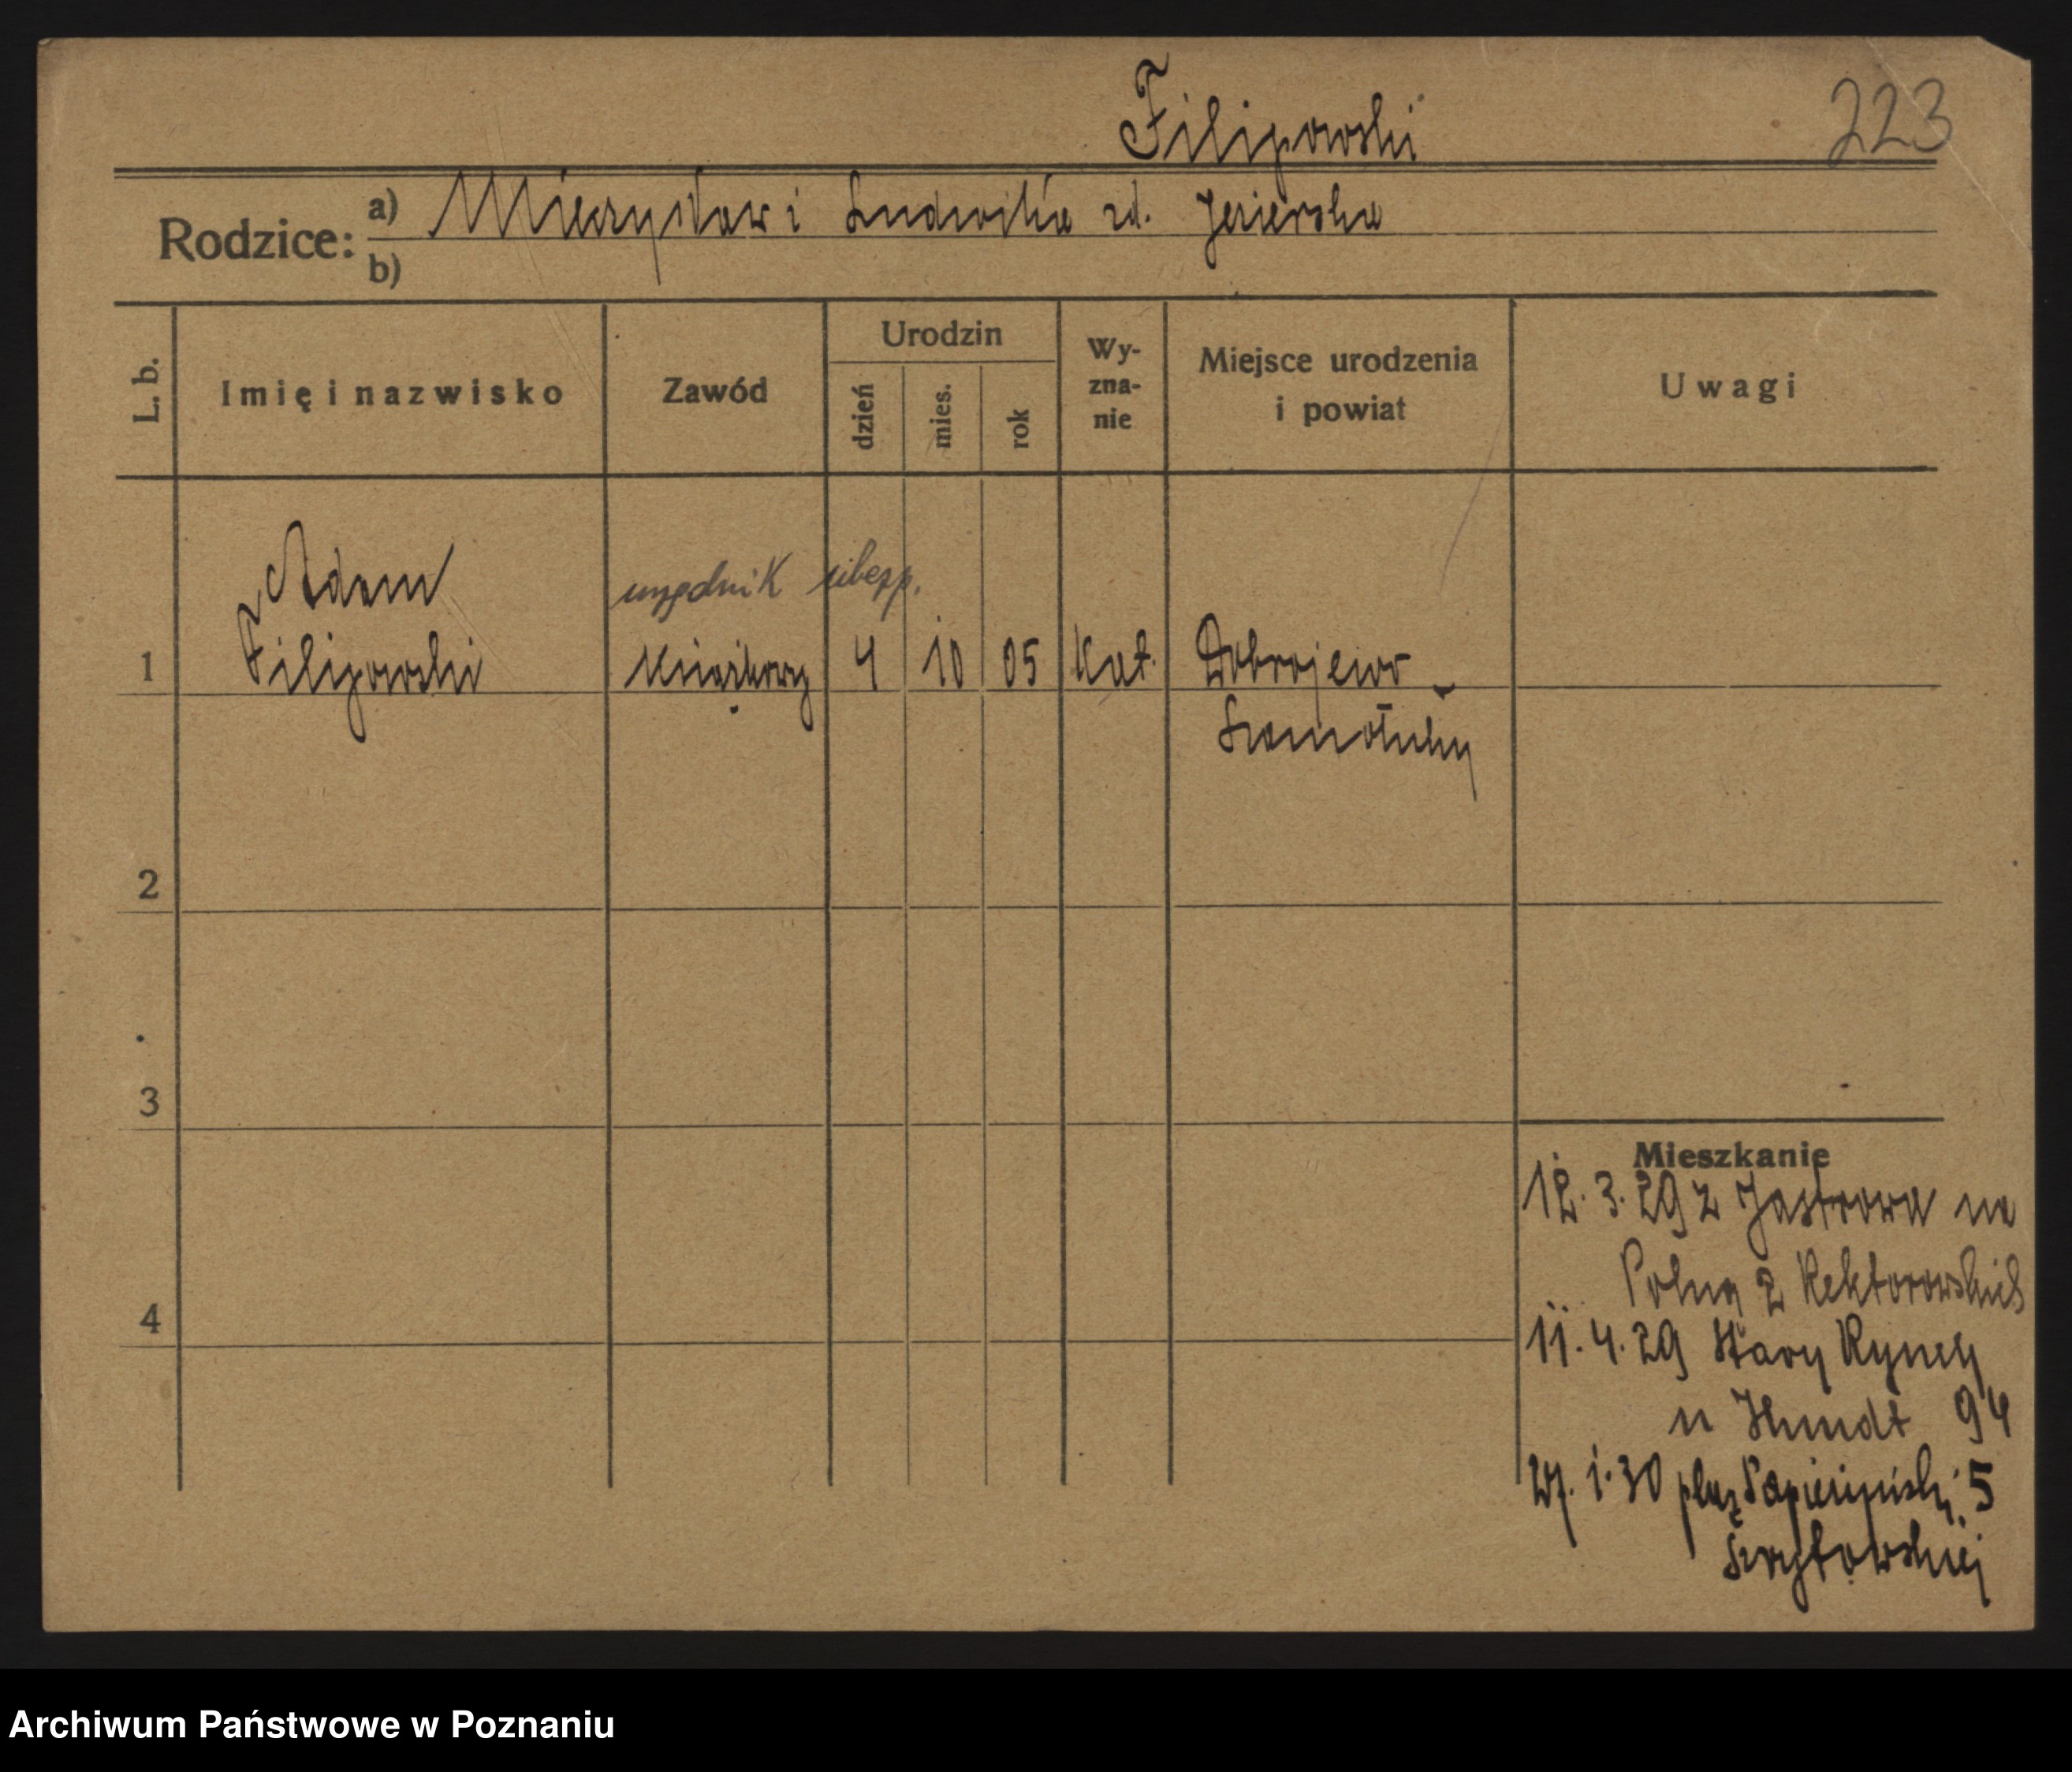 Filipowski 223
Rodzice: a) Mieczysław i Ludwika zd. Jezierska
b)
L. b. Imię i nazwisko Zawód Urodzin dzień mies. rok Wyznanie Miejsce urodzenia i powiat Uwagi
Adam urzędnik ubezp.
1 Filipowski Książkowy 4 10 05 kat. Dobrojewo -
Szamotuły
2
3
Mieszkanie
12. 3. 29 z Jastrowa na
Polną 2 Rektorowskich
4
11. 4. 29 Stary Rynek
u Hundt 94
27. 1. 30 plac Sapieżyński 5
Archiwum Państwowe w Poznaniu